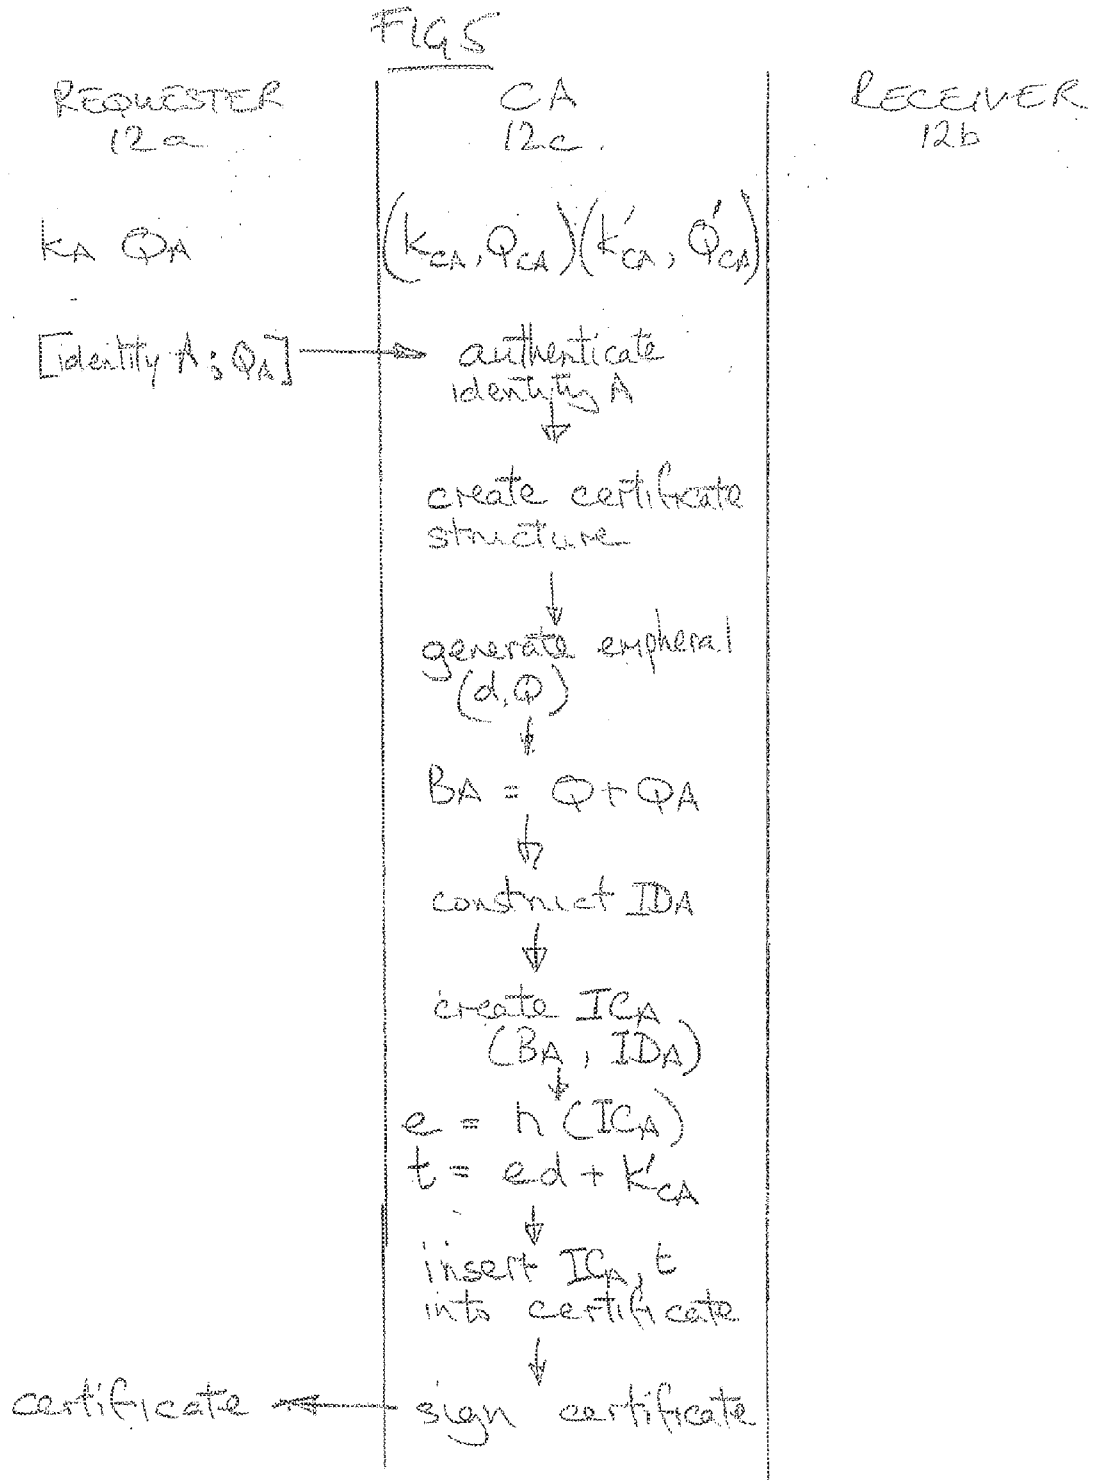 FIG 5
REQUESTER
12a
CA
12c.
RECEIVER
12b
kA QA
(kCA, QCA)(k'CA, Q'CA)
[identity A; QA]
authenticate
identity A
create certificate
structure
generate empheral
(d,Q)
BA = Q + QA
construct IDA
create ICA
(BA, IDA)
e = h(ICA)
t = ed + k'CA
insert ICA, t
into certificate
sign certificate
certificate